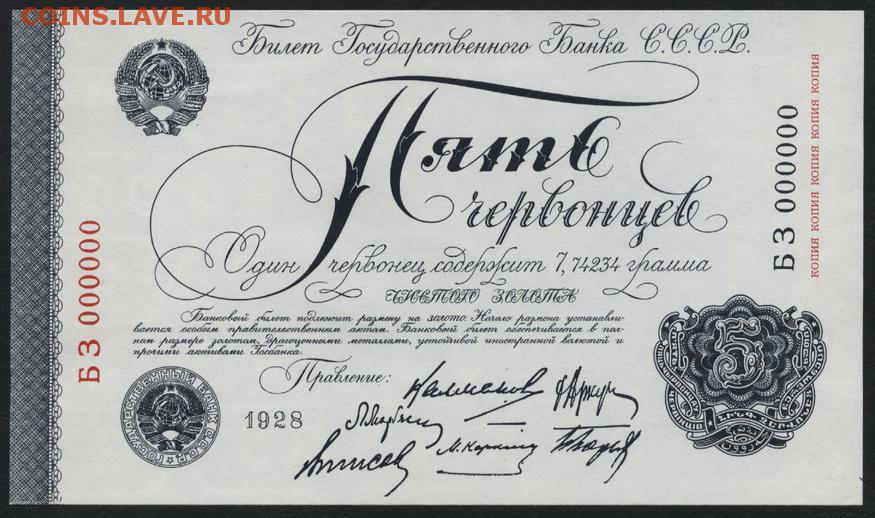 COINS.LAVE.RU
Билет Государственного Банка С.С.С.Р.
Пять
червонцев
Один червонец содержит 7,74234 грамма
ЧИСТОГО ЗОЛОТА
Банковый билет подлежит размену на золото. Начало размена устанавли-
вается особым правительственным актом. Банковый билет обеспечивается в пол-
ном размере золотом, драгоценными металами, устойчивой иностранной валютой и
прочими активами Госбанка.
Правление:
1928
БЗ 000000
БЗ 000000
КОПИЯ КОПИЯ КОПИЯ КОПИЯ КОПИЯ КОПИЯ
ГОСУДАРСТВЕННЫЙ БАНК С.С.С.Р.
5